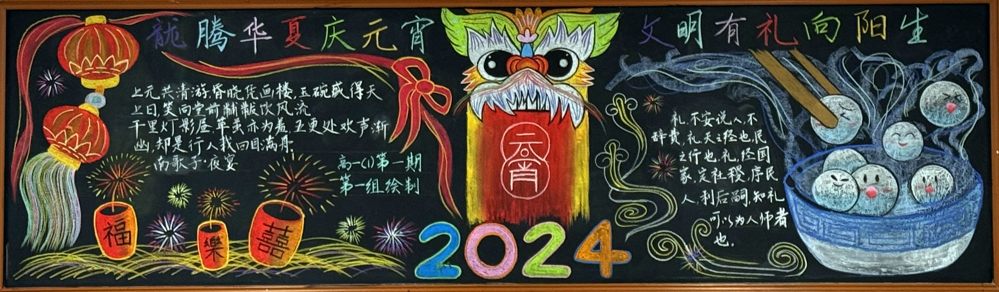 龍腾华夏庆元宵
文明有礼向阳生
上元共清游昏晓凭画楼玉碗盛得天
上日笑向堂前翩翩饮风流
千里灯影座苹羹亦为羞五更处欢声渐
幽却是行人我回目满舟
南歌子·夜宴
高一(1)第一期
第一组绘制
元宵
福
樂
囍
2024
礼,不妄说人,不
辞费,礼天之经也,民
之行也。礼,经国
家,定社稷,序民
人,利后嗣,知礼
可以为人师者
也。